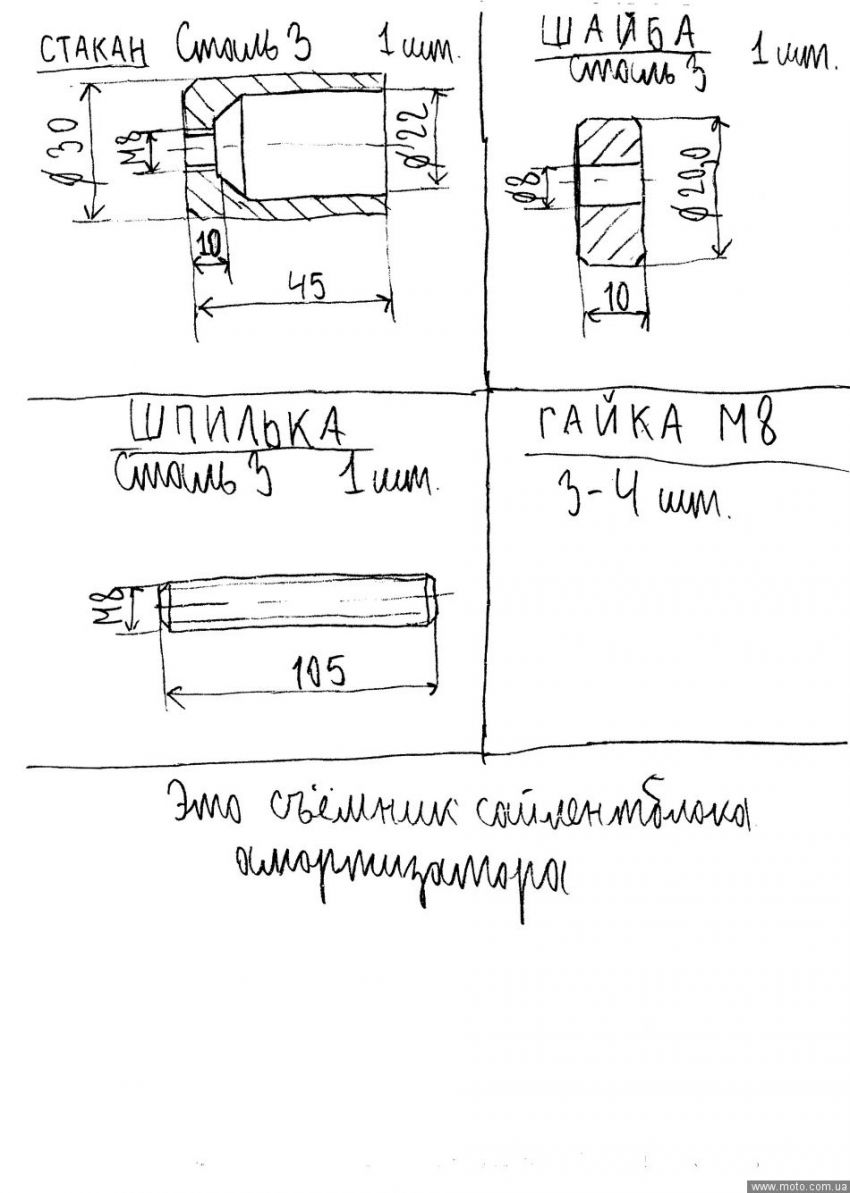 СТАКАН Сталь 3 1 шт.
ø30
М8
ø22
10
45
ШАЙБА
Сталь 3 1 шт.
ø8
ø20,0
10
ШПИЛЬКА
Сталь 3 1 шт.
М8
105
ГАЙКА М8
3-4 шт.
Это съёмник сайлентблока
амортизатора
www.moto.com.ua